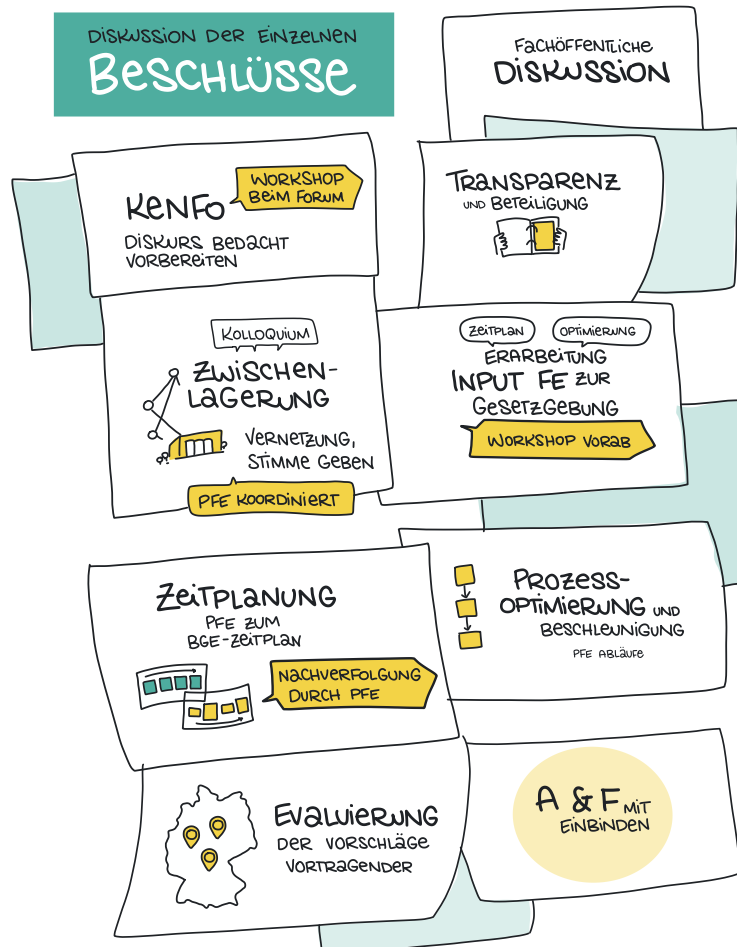 DISKUSSION DER EINZELNEN
BESCHLÜSSE
FACHÖFFENTLICHE
DISKUSSION
KENFO
WORKSHOP
BEIM FORUM
DISKURS BEDACHT
VORBEREITEN
TRANSPARENZ
UND BETEILIGUNG
KOLLOQUIUM
ZWISCHEN-
LAGERUNG
VERNETZUNG,
STIMME GEBEN
PFE KOORDINIERT
ZEITPLAN
OPTIMIERUNG
ERARBEITUNG
INPUT FE ZUR
GESETZGEBUNG
WORKSHOP VORAB
ZEITPLANUNG
PFE ZUM
BGE-ZEITPLAN
NACHVERFOLGUNG
DURCH PFE
PROZESS-
OPTIMIERUNG UND
BESCHLEUNIGUNG
PFE ABLÄUFE
EVALUIERUNG
DER VORSCHLÄGE
VORTRAGENDER
A & F MIT
EINBINDEN